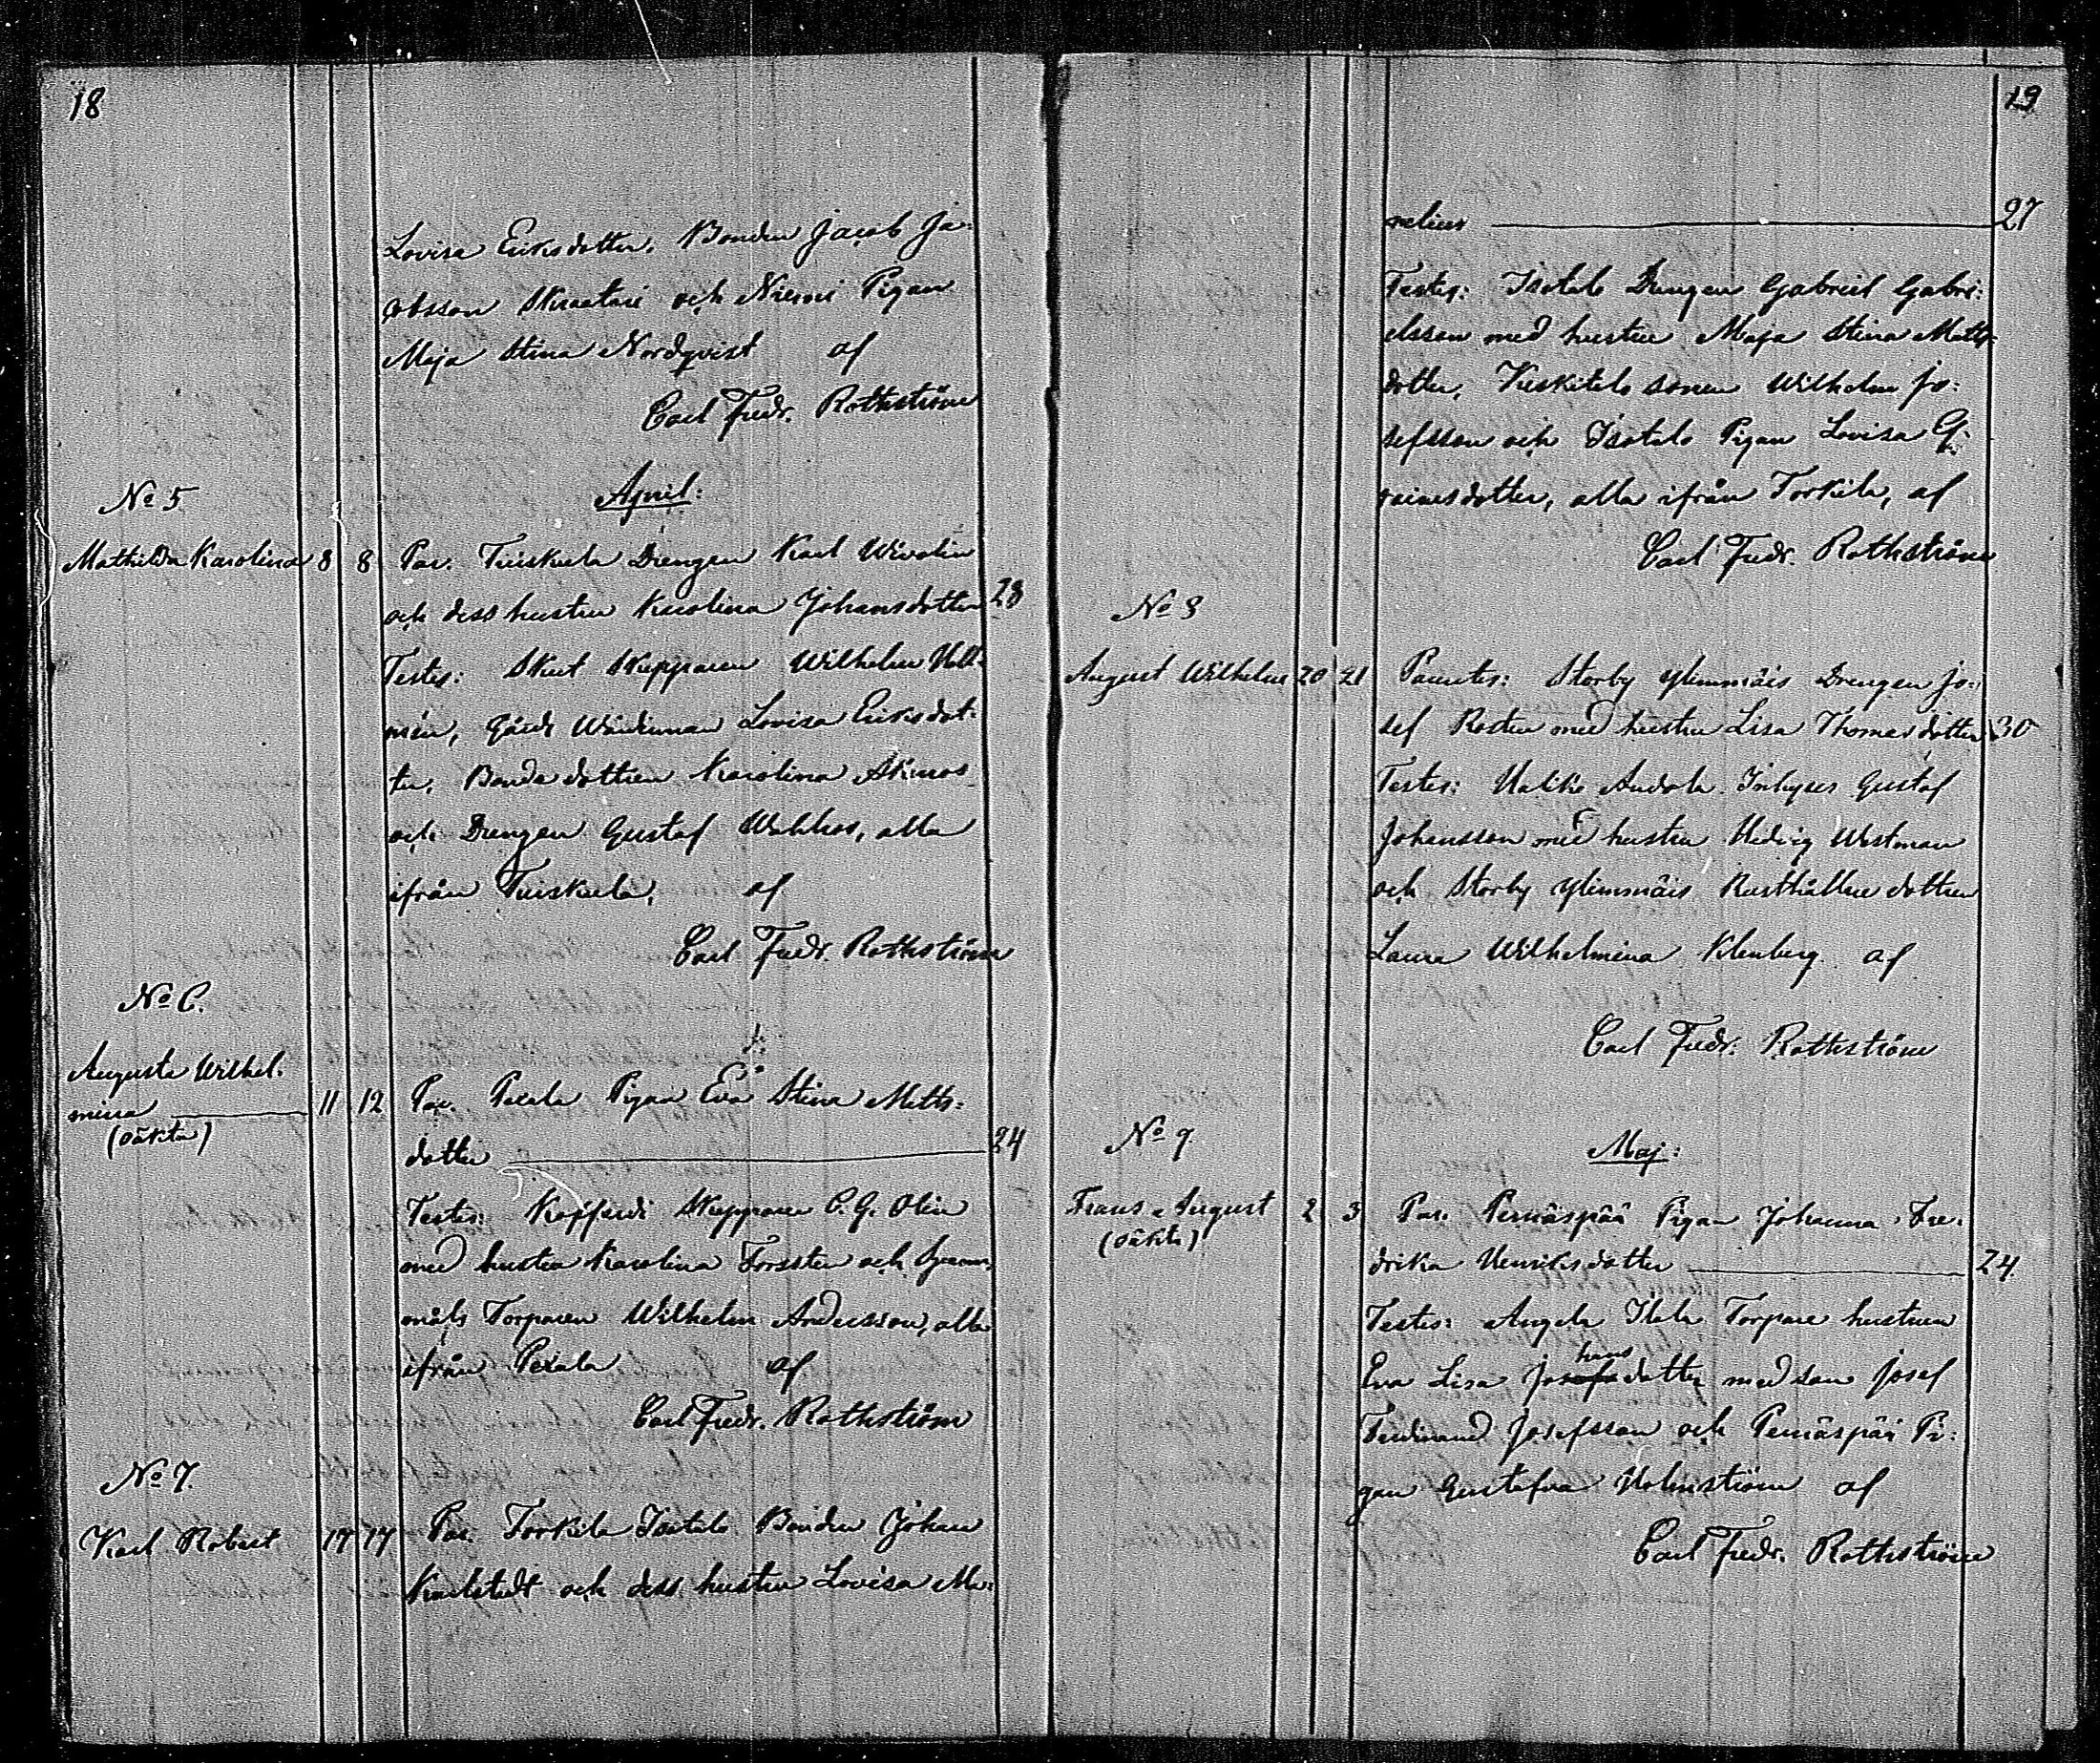 18
Lovisa Eriksdotter. Bonden Jacob Ja-
cobsson Skraatari och Niemi Pigan
Maja Stina Nordqvist af
Carl Fredr. Rothström
April:
No 5
Mathilda Karolina 8 8 Par. Tuiskula Drengen Karl Wivolin
och dess hustru Karolina Johansdotter 28
Testes: Skut Skepparen Wilhelm Hell-
mén, Gårds Wärdinnan Lovisa Eriksdot-
ter, Bonde dottren Karolina
och Drengen Gustaf Wahlros, alla
ifrån Tuiskula, af
Carl Fredr. Rothström
No 6.
Augusta Wilhel-
mina 11 12 Par. Pexala Pigan Eva Stina Matts-
(oäkta)
dotter 24
Testes: Kofferdi Skepparen C. G. Olin
med hustru Karolina Forsstén och
måls Torparen Wilhelm Andersson, alla
ifrån Pexala af
Carl Fredr. Rothström
No 7.
Karl Robert 17 17 Par. Torkila Isotalo Bonden Johan
Karlstedt och dess hustru Lovisa Me-
19
nelius 27
Testes: Isotalo Drengen Gabriel Gabri-
elsson med hustru Maja Stina Matts-
dotter, Keskitalo sonen Wilhelm Jo-
sefsson och Isotalo Pigan Lovisa
dotter, alla ifrån Torkila, af
Carl Fredr. Rothström
No 8
August Wilhelm 20 21 Parentes: Storby Ylimmäis Drengen Jo-
sef Rosten med hustru Lisa Thomasdotter 30
Testes: Halikko Andola Inhyses Gustaf
Johansson med hustru Hedvig Westman
och Storby Ylimmäis Rusthållare dottren
Laura Wilhelmina Klenberg af
Carl Fredr. Rothström
No 9.
Maj:
Frans August 2 3 Par. Pernäspää Pigan Johanna Fre-
(oäkta)
drika Henriksdotter 24.
Testes: Angela Itala Torpare hustrun
hans
Eva Lisa Josefsdotter med son Josef
Ferdinand Josefsson och Pernäspää Pi-
gan Gustafva Holmström af
Carl Fredr. Rothström